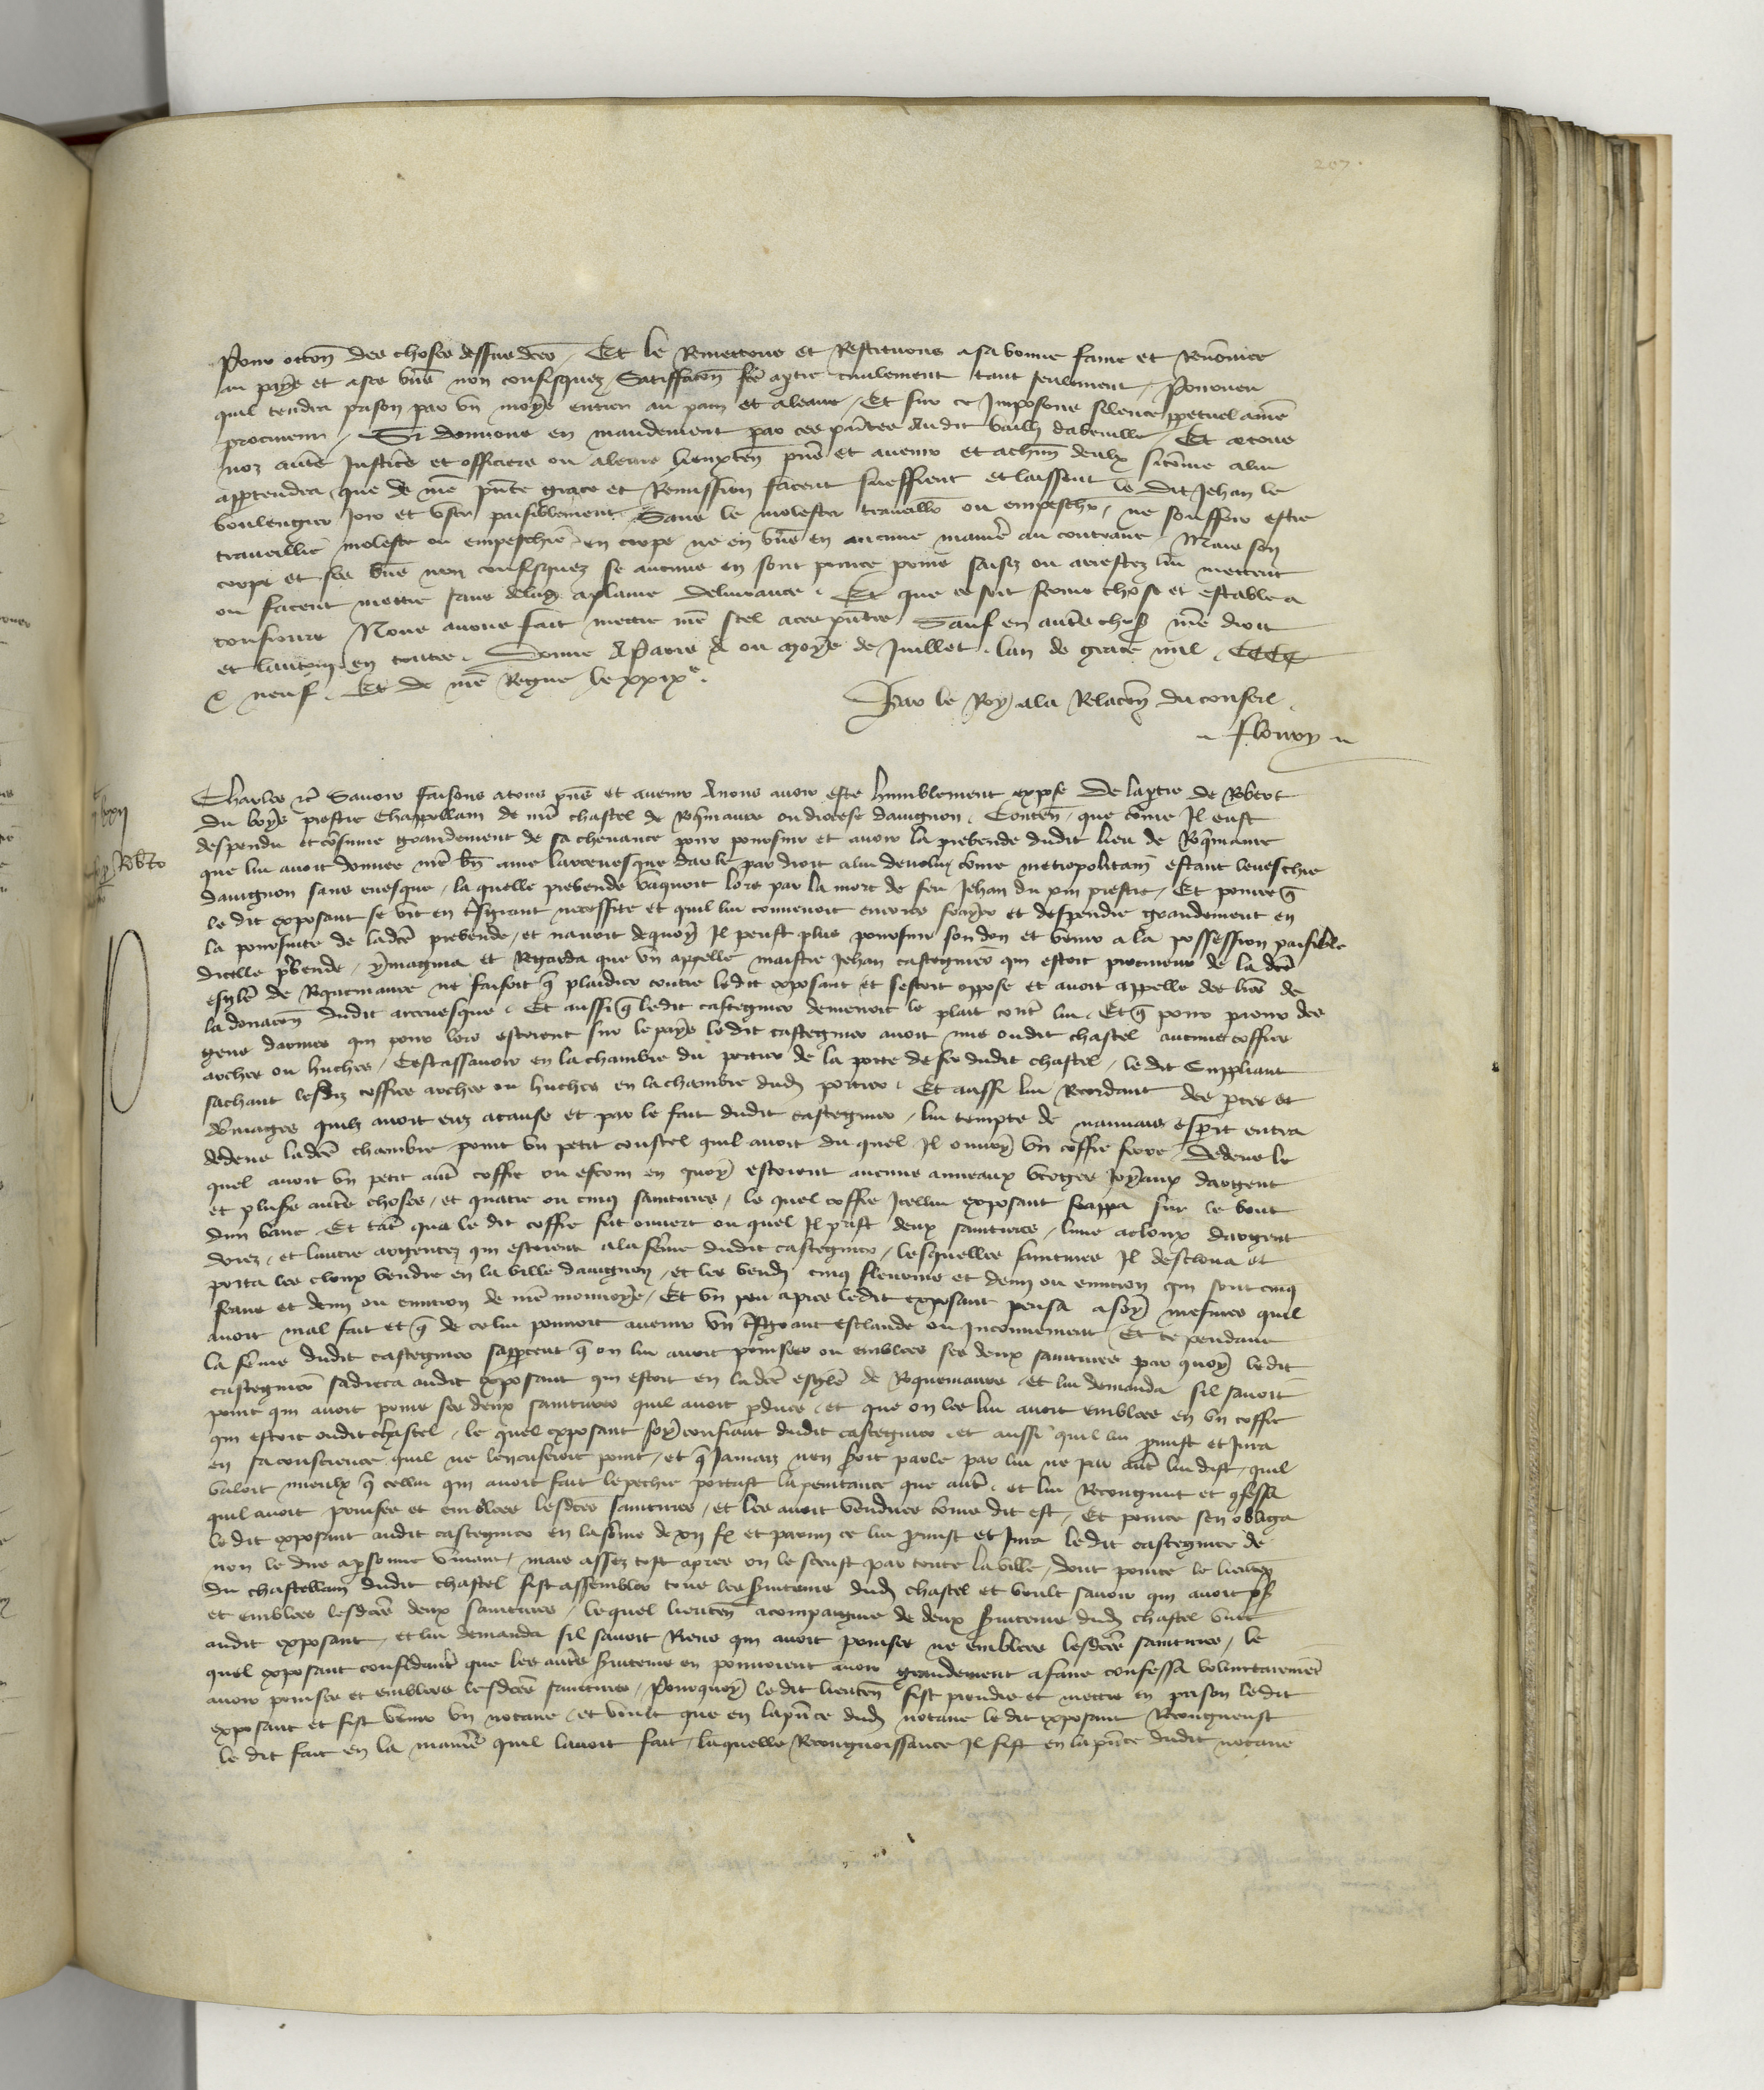 207.
Pour occoñ des choses dessus dcēs / Et le Remettons et Restituons a sa bonne fame et Renōmee
au pays et a ses bñs non confisquez / Satisfacoñ fcē a ptie civilement tant seulement / Pourveu
quil tendra prison par un moys entier au pain et a leaue / Et sur ce Imposons silence ppetuel a nrē
procureur / Si donnons en mandement par ces pñtes Au dit bailli Et a tous
noz autrēs Justiciēs et officiers ou a leurs lieuxteñ pñs et avenir et a chūn deulx si cōme a lui
appartendra que de nrē pñte grace et Remission facent sueffrent et laissent le dit Jehan le
boulengier Joir et user paisiblement Sans le molester travaillēr ou empeschēr / ne souffrir estre
travaillié molesté ou empeschié en corps ne en bñs en aucune manierē au contraire Mais son
corps et ses bñs non confisquez se aucuns en sont prins saisiz ou arrestez lui mettent
ou facent mettre sans delay a plaine delivrance . Et que ce soit ferme chose et estable a
tousiours Nous avons fait mettre nrē seel a ces pñtes Sauf en autrēs choses nrē droit
et lautruy en toutes . Donné A Paris ou moys de Juillet . lan de grace mil . CCCC
et neuf . Et de nrē Regne le xxixe .
Par le Roy a la Relacoñ du conseil .
Floury
Charles etc Savoir faisons a tous pñs et avenir A nous avoir esté humblement exposé De la ptie de Robert
du boys prestre Chappellain de nrē chastel de Roquemaure ou diocese davignon . Conteñ que cōme Il eust
despendu et cōsumé grandement de sa chevance pour poursuir et avoir la prebende dudit lieu de Roquemaure
que lui avoit donnee nrē bñ amé larcevesque darle par droit a lui devolu cōme metropolitain estant leveschié
davignon sans evesque / la quelle prebende vaquoit lors par la mort de feu Jehan du prestre / Et pource q̄
le dit exposant se vit en tresgrant necessité et quil lui convenoit encores frayer et despendre grandement en
la poursuite de ladcē prebende / et navoit de quoy Il peust plus poursuir son don et venir a la possession paisible
dicelle prebende / ymagina et Regarda que un appellé maistre Jehan castegnier qui estoit procureur de la dcē
eglisē de Roquemaure ne faisoit q̄ plaidier contre ledit exposant et sestoit opposé et avoit appellé des lres de
la donacoñ dudit arcevesque . Et aussi q̄ ledit castegnier demenoit le plait contre lui . Et q̄ pour paour des
gens darmes qui pour lors estoient sur le pays le dit castegnier avoit mis oudit chastel aucuns coffres
arches ou huches / Cestassavoir en la chambre du portier de la porte de fer dudit chastel / le dit Suppliant
sachant lesdiz coffres arches ou huches en la chambre dud portier . Et aussi lui Recordant des ptes et
dōmages quilz avoit euz a cause et par le fait dudit castegnier / lui tempté de mauvais esprit entra
dedens ladcē chambre print un petit coustel quil avoit du quel Il ouvry un coffre ferré Dedens le
quel avoit un petit autre coffre ou escrin en quoy estoient aucuns anneaux verges Joyaux dargent
et plusrs autrēs choses / et quatre ou cinq saintures / le quel coffre Icellui exposant frappa sur le bout
dun banc . Et tāt que le dit coffre fut ouvert ou quel Il prist deux saintures / lune a cloux dargent
dorez / et lautre argentez qui estoient a la fēme dudit castegnier / lesquelles saintures Il descloua et
porta les cloux vendre en la ville davignon / et les vendi cinq florins et demi ou environ qui sont cinq
frans et demi ou environ de nrē monnoye / Et un peu apres ledit exposant pensa a soy mesmes quil
avoit mal fait et q̄ de ce lui pourroit avenir un tresgrant esclande ou Inconvenient Et ce pendant
la fēme dudit castegnier sapperceut q̄ on lui avoit prinses ou emblees ses deux saintures par quoy ledit
castegnier sadreca audit exposant qui estoit en ladcē eglisē de Roquemaure et lui demanda sil savoit
point qui avoit prins ses deux saintures quil avoit pdues / et que on les lui avoit emblees en un coffre
qui estoit oudit chastel / le quel exposant soy confiant dudit castegnier et aussi quil lui pmist et Jura
en sa conscience quil ne lencuseroit point / et q̄ Jamais nen seroit parole par lui ne par autre lui dist / quil
valoit mieulx q̄ cellui qui avoit fait le pechié portast la penitance que autre . et lui Recongnut et confessa
quil avoit prinses et emblees lesdcēs saintures / et les avoit vendues cōme dit est / Et pource sen obliga
le dit exposant audit castegnier en la sōme de et parmi ce lui pmist et Jura le dit castegnier de
non le dire a psonne vivant / mais assez tost apres on le sceust par toute la ville / dont pource le lieuten
du chastellain dudit chastel fist assembler tous les serviteurs dud chastel et voult savoir qui avoit
et emblees lesdcēs deux saintures / lequel lieuteñ acompaigné de deux serviteurs dud chastel vint
audit exposant / et lui demanda sil savoit Riens qui avoit prinses ne emblees lesdcēs saintures / le
quel exposant considerant que les autrēs serviteurs en pourroient avoir grandement a faire confessa voluntairemēt
avoir prinses et emblees lesdcēs saintures / Pourquoy le dit lieuteñ fist prendre et mettre en prison ledit
exposant et fist venir un notaire et voult que en la pñce dud notaire le dit exposant Recongneust
le dit fait en la manierē quil lavoit fait / laquelle Recongnoissance Il fist en la pñce dudit notaire